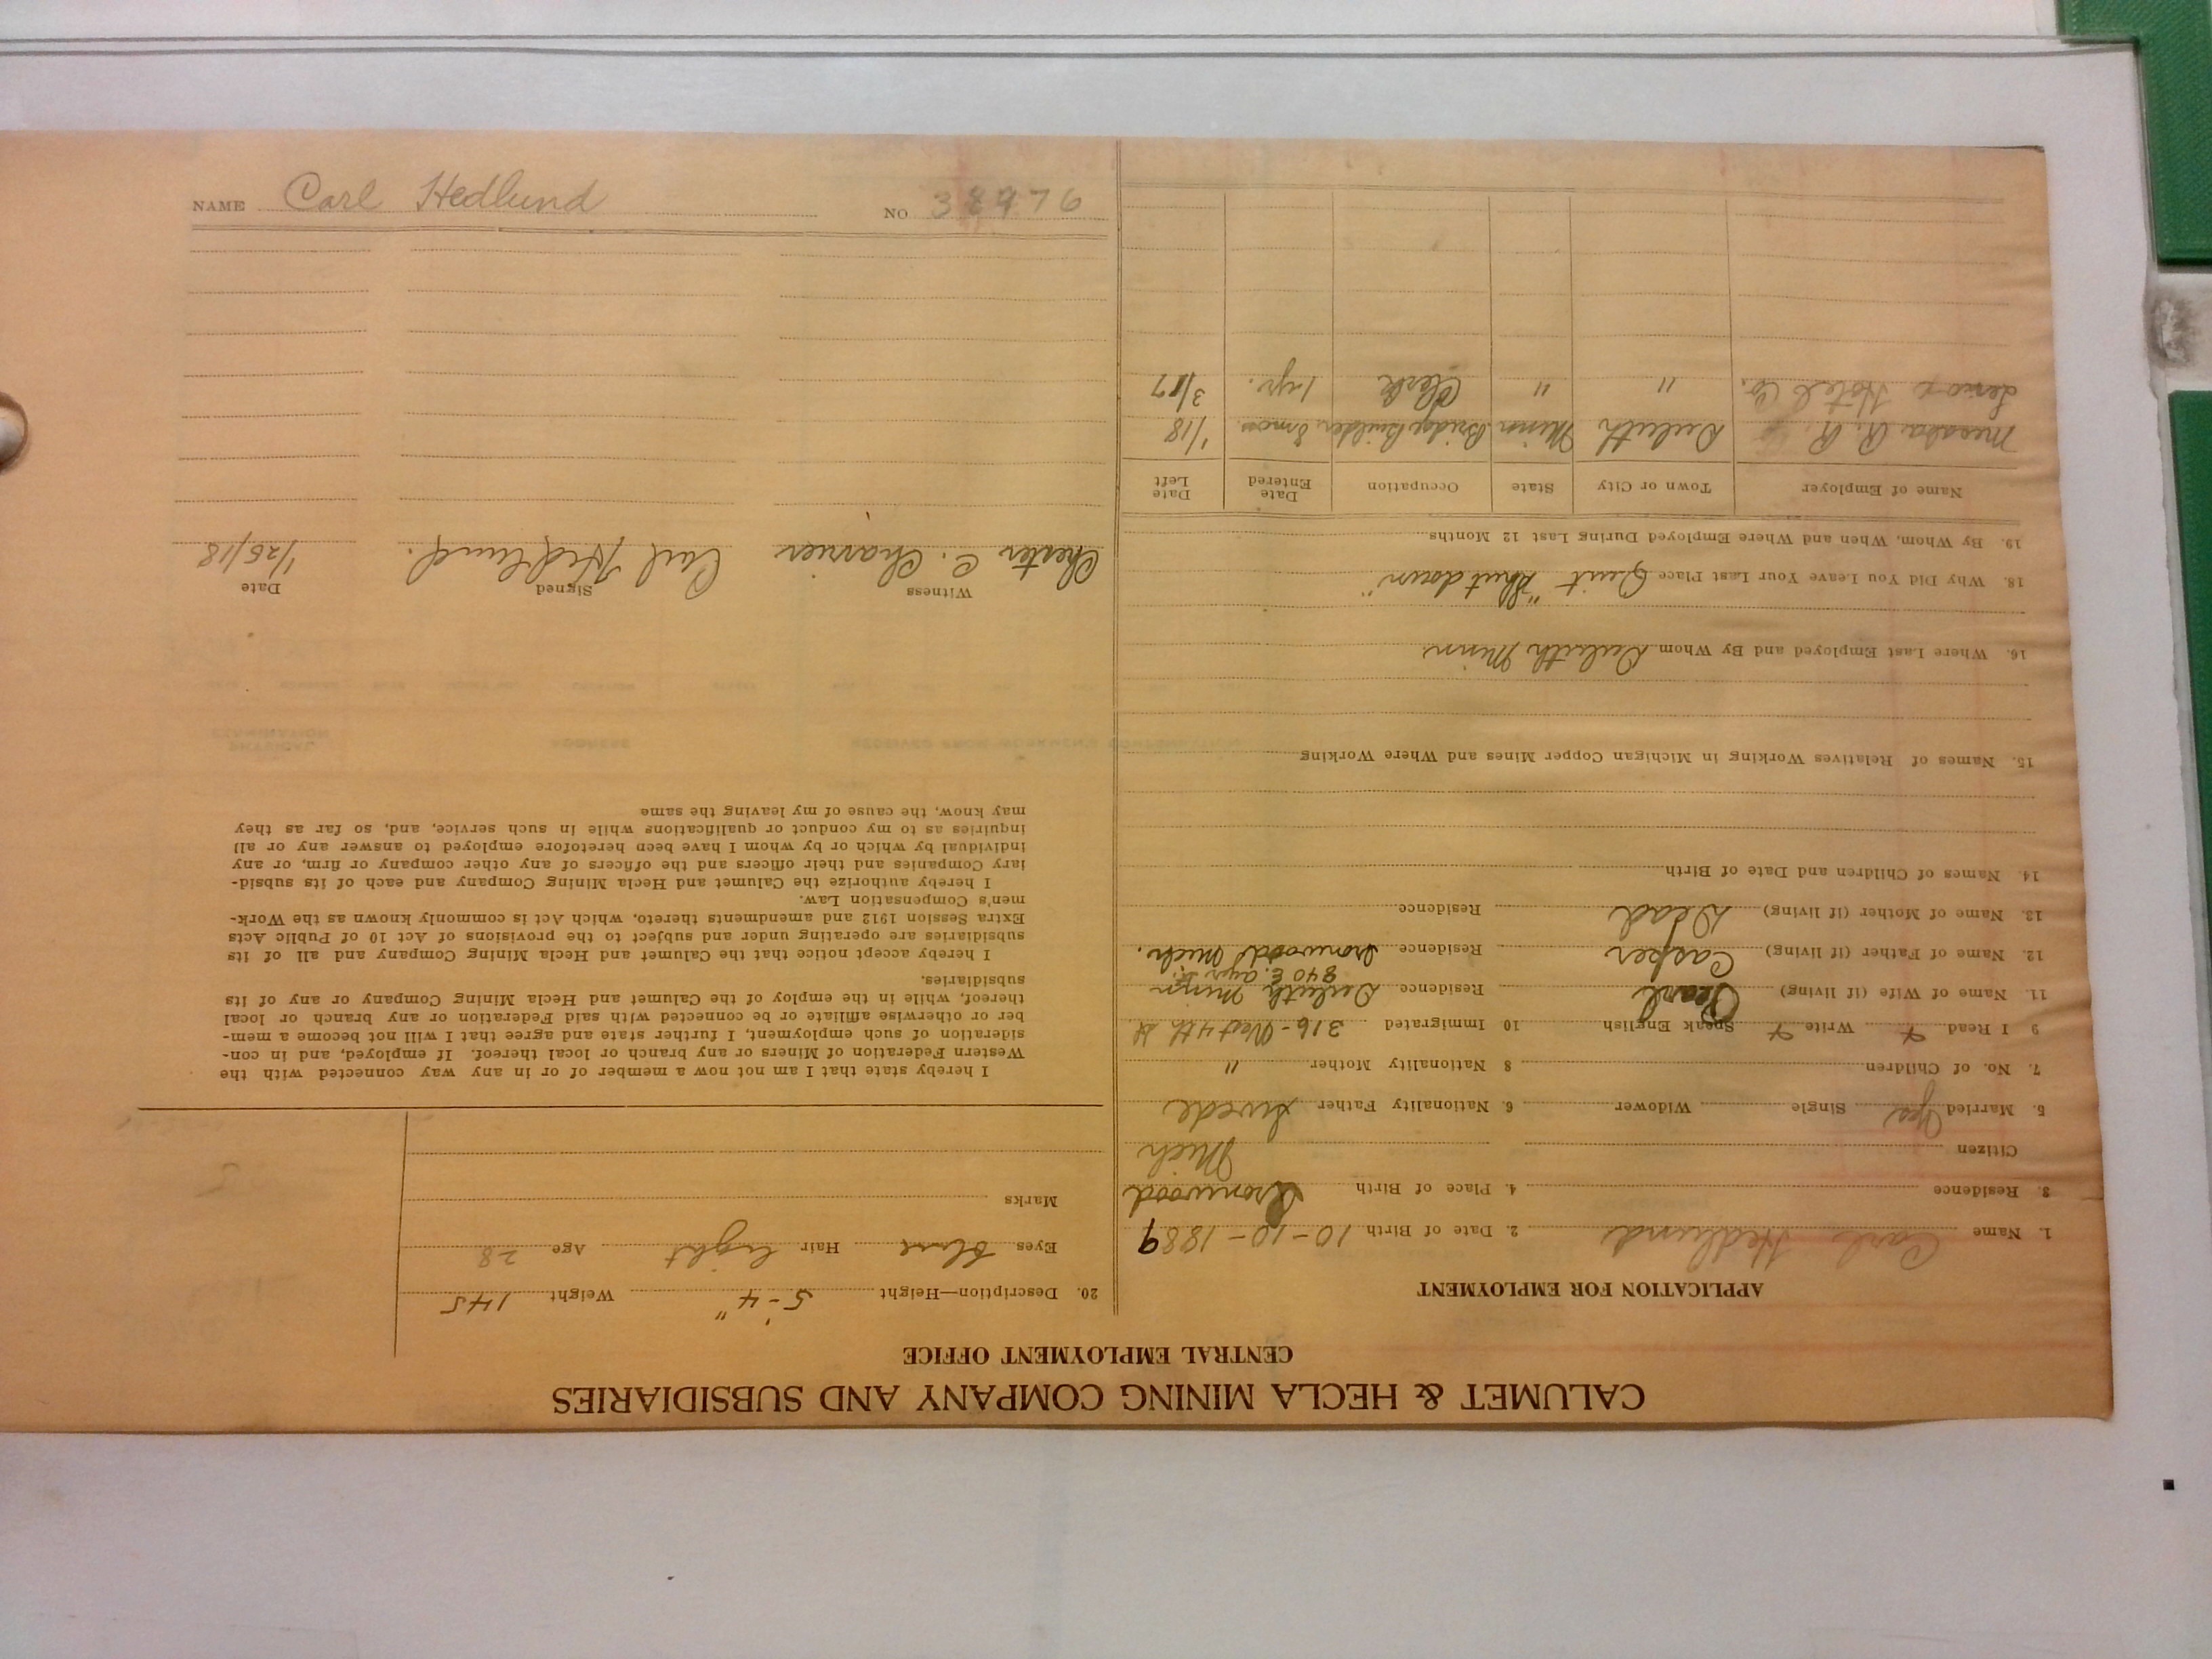 CALUMET & HECLA MINING COMPANY AND SUBSIDIARIES
CENTRAL EMPLOYMENT OFFICE
APPLICATION FOR EMPLOYMENT
1. Name Carl Hedlund 2. Date of Birth 10-10-1889
3. Residence 4. Place of Birth Ironwood
Citizen Mich
5. Married Yes Single Widower 6. Nationality Father Swede
7. No. of Children 8 Nationality Mother "
9 I Read Write Speak English 10 Immigrated 316- West 4th St
11. Name of Wife (if living) Pearl Residence Duluth Minn
840 E. Ayer St.
12. Name of Father (if living) Casper Residence Ironwood Mich.
13. Name of Mother (if living) Dead Residence
14. Names of Children and Date of Birth
15. Names of Relatives Working in Michigan Copper Mines and Where Working
16. Where Last Employed and By Whom Duluth Minn
18. Why Did You Leave Your Last Place Quit "Shut down"
19. By Whom, When and Where Employed During Last 12 Months
Name of Employer Town or City State Occupation Date Entered Date Left
R. R. Duluth Minn Bridge Builder 8 mos 1/18
Hotel Co. " " Clerk 1 yr. 3/17
20. Description—Height 5'-4" Weight 145
Eyes Blue Hair light Age 28
Marks
I hereby state that I am not now a member of or in any way connected with the
Western Federation of Miners or any branch or local thereof. If employed, and in con-
sideration of such employment, I further state and agree that I will not become a mem-
ber or otherwise affiliate or be connected with said Federation or any branch or local
thereof, while in the employ of the Calumet and Hecla Mining Company or any of its
subsidiaries.
I hereby accept notice that the Calumet and Hecla Mining Company and all of its
subsidiaries are operating under and subject to the provisions of Act 10 of Public Acts
Extra Session 1912 and amendments thereto, which Act is commonly known as the Work-
men's Compensation Law.
I hereby authorize the Calumet and Hecla Mining Company and each of its subsid-
iary Companies and their officers and the officers of any other company or firm, or any
individual by which or by whom I have been heretofore employed to answer any or all
inquiries as to my conduct or qualifications while in such service, and, so far as they
may know, the cause of my leaving the same
Witness Signed Date
Chester C. Charrier Carl Hedlund. 1/25/18
NAME Carl Hedlund NO 38976